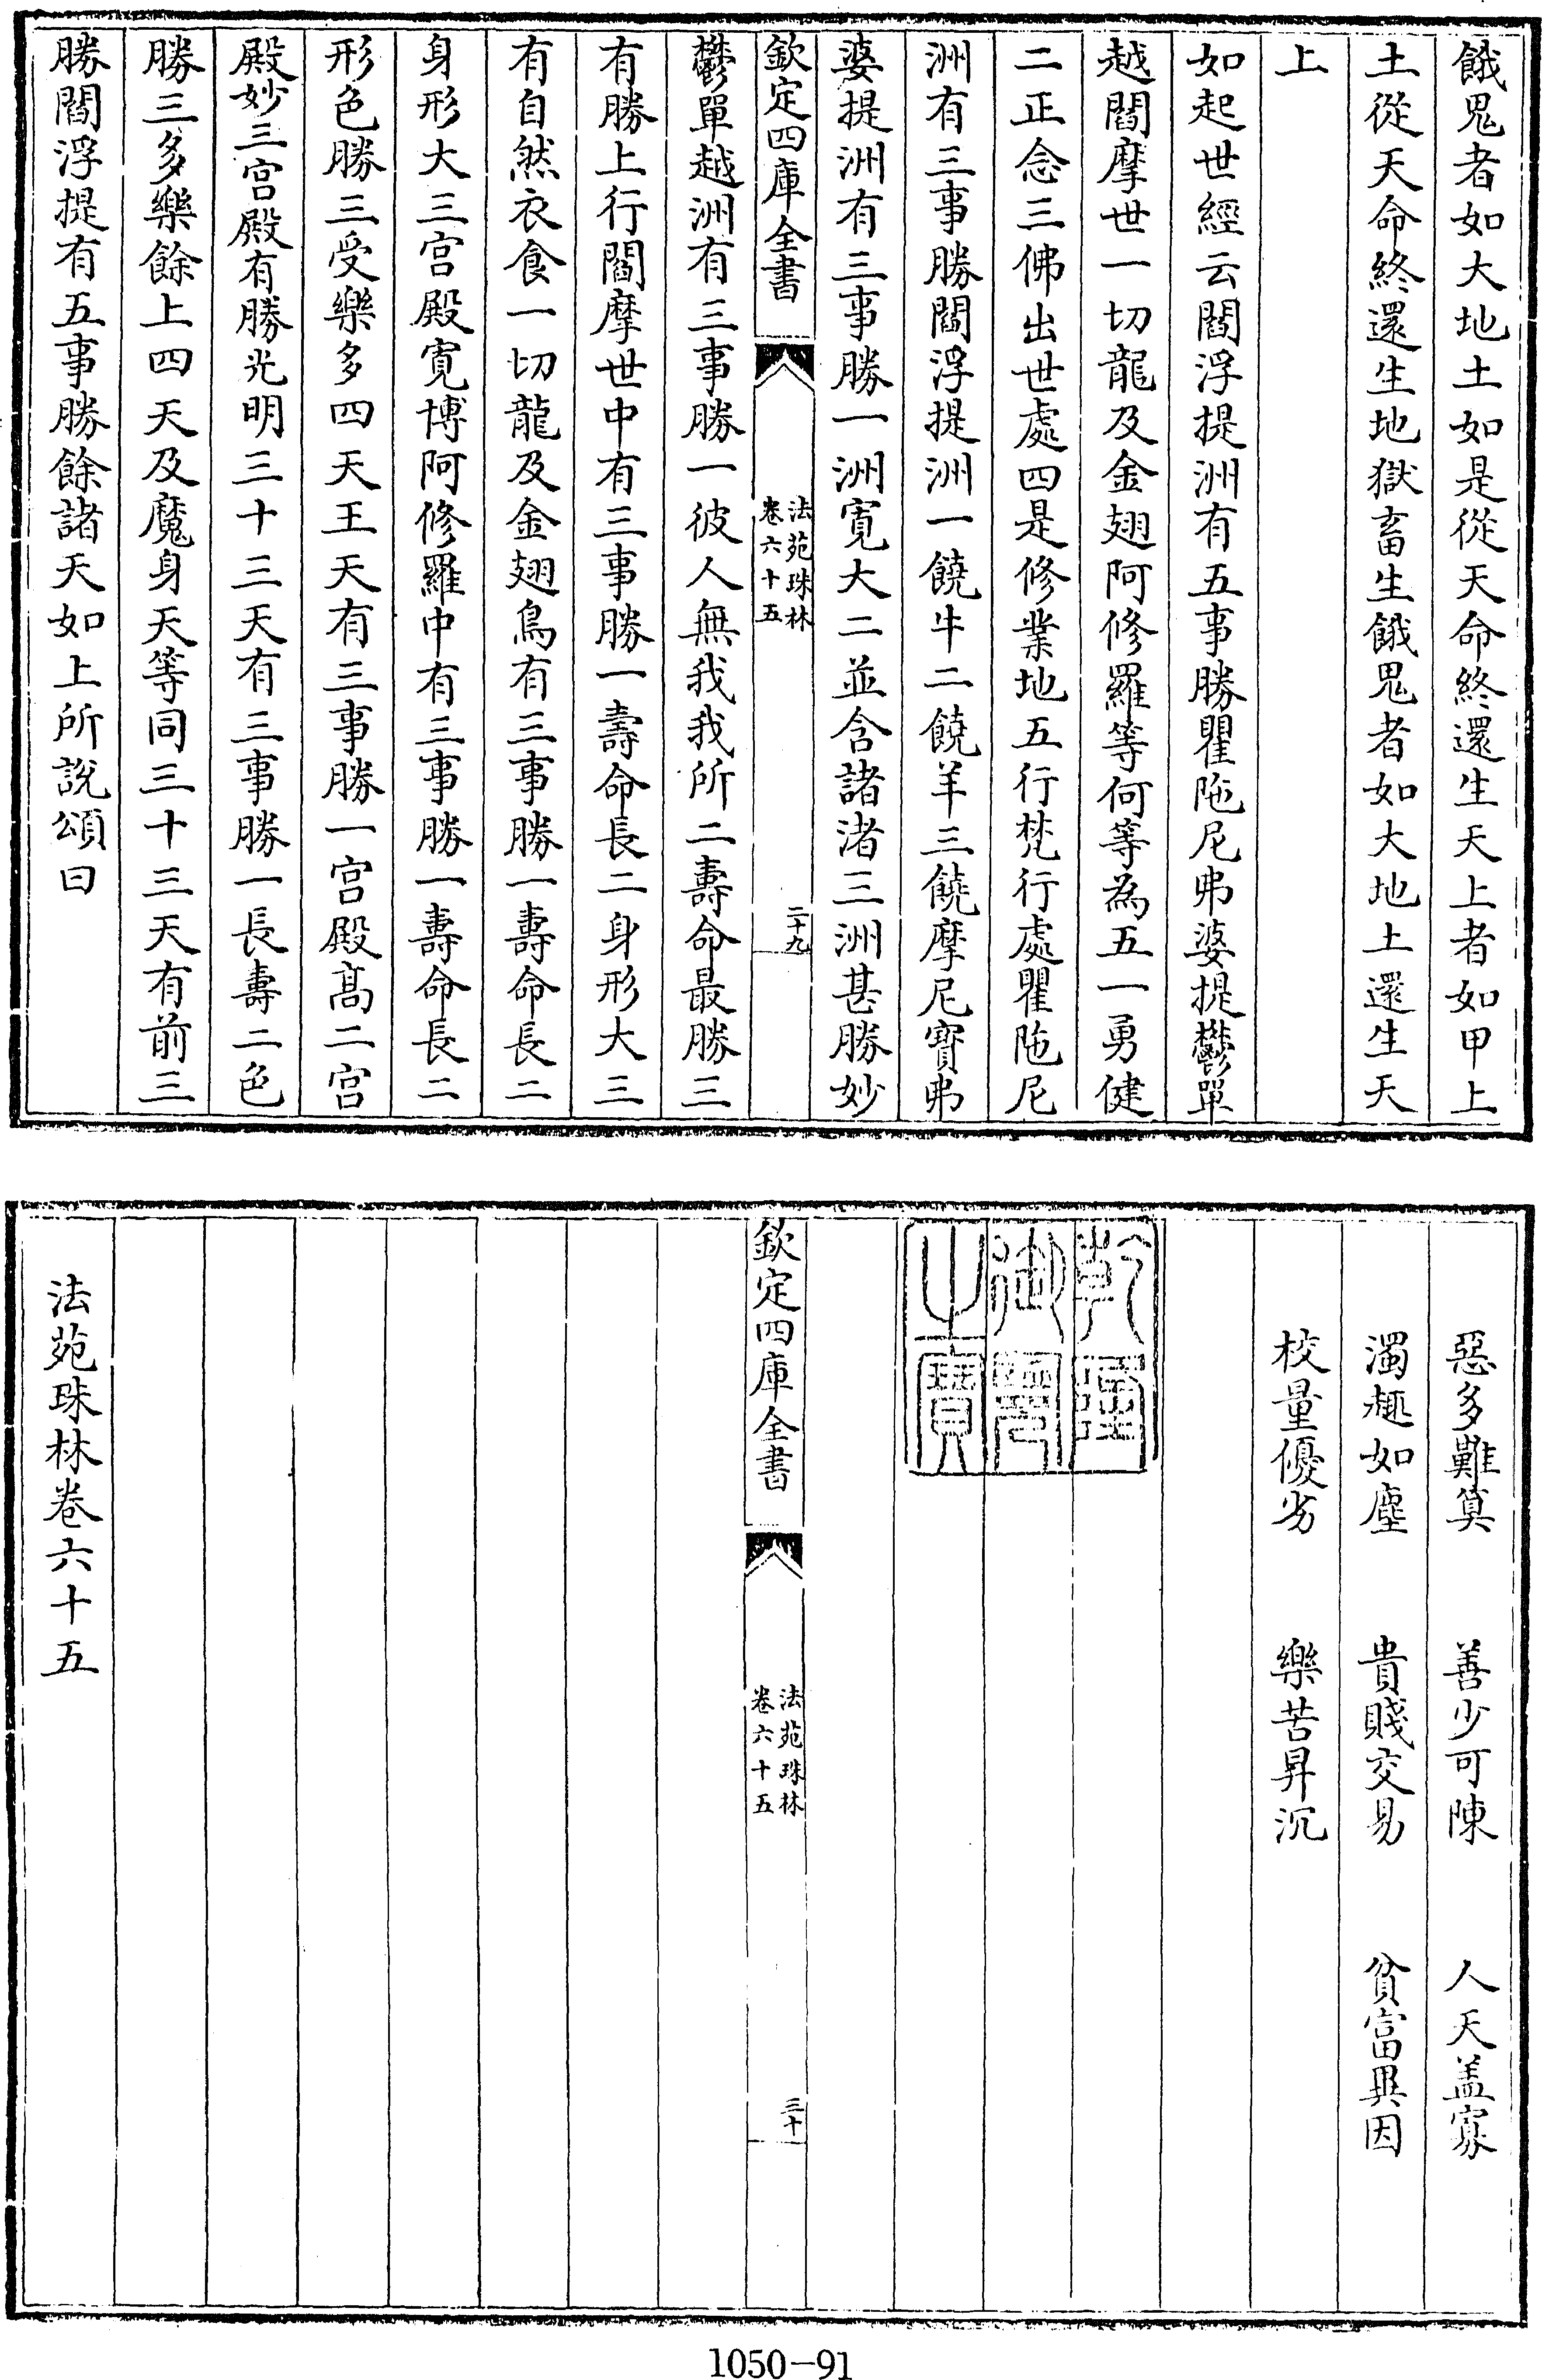 餓鬼者如大地土如是從天命終還生天上者如甲上
土從天命終還生地獄畜生餓鬼者如大地土還生天
上
如起世經云閻浮提洲有五事勝瞿陁尼弗婆提鬱單
越閻摩世一切龍及金翅阿修羅等何等為五一勇健
二正念三佛出世處四是修業地五行梵行處瞿陁尼
洲有三事勝閻浮提洲一饒牛二饒羊三饒摩尼寶弗
婆提洲有三事勝一洲寛大二並含諸渚三洲甚勝妙
欽定四庫全書
法苑珠林
卷六十五
二十九
鬱單越洲有三事勝一彼人無我我所二壽命最勝三
有勝上行閻摩世中有三事勝一壽命長二身形大三
有自然衣食一切龍及金翅鳥有三事勝一壽命長二
身形大三宫殿寛博阿修羅中有三事勝一壽命長二
形色勝三受樂多四天王天有三事勝一宫殿髙二宫
殿妙三宫殿有勝光明三十三天有三事勝一長壽二色
勝三多樂餘上四天及魔身天等同三十三天有前三
勝閻浮提有五事勝餘諸天如上所說頌曰
惡多難筭 善少可陳 人天盖寡
濁趣如塵 貴賤交易 貧富異因
校量優劣 樂苦昇沉
乾隆
御覽
之寶
欽定四庫全書
法苑珠林
卷六十五
三十
法苑珠林卷六十五
1050-91